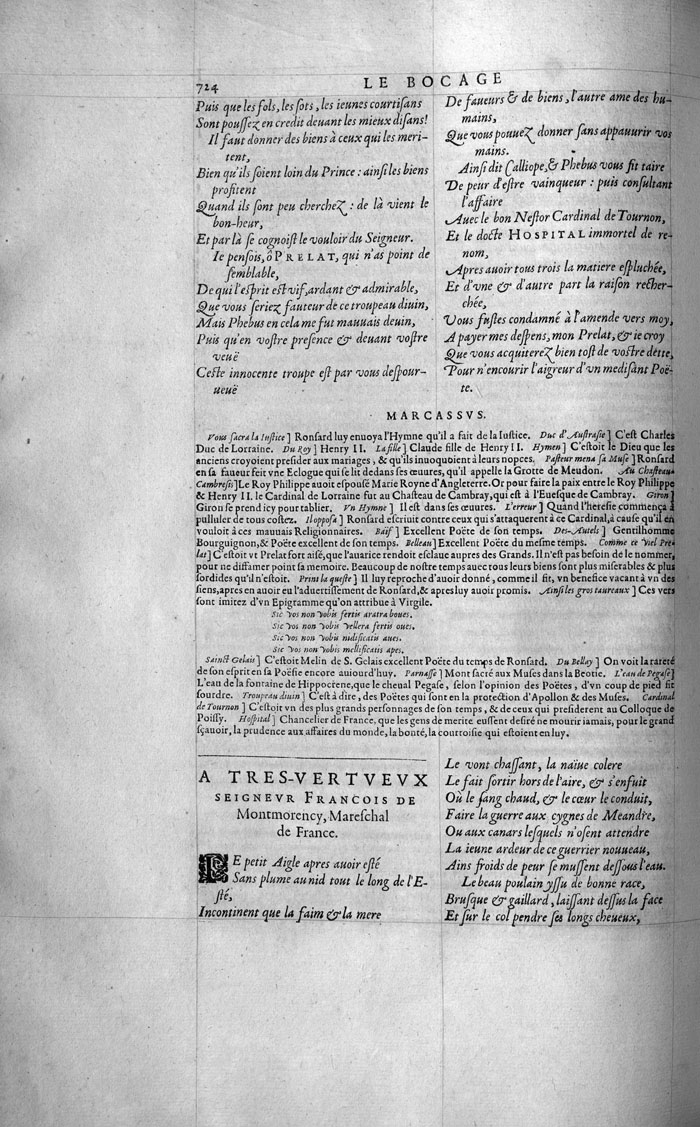 724
LE BOCAGE
Puis que les fols, les sots, les ieunes courtisans
Sont poussez en credit deuant les mieux disans!
Il faut donner des biens à ceux qui les meri-
tent,
Bien qu'ils soient loin du Prince : ainsi les biens
profitent
Quand ils sont peu cherchez : de là vient le
bon-heur,
Et par là se cognoist le vouloir du Seigneur.
Ie pensois, ô PRELAT, qui n'as point de
semblable,
De qui l'esprit est vif, ardant & admirable,
Que vous seriez fauteur de ce troupeau diuin,
Mais Phebus en cela me fut mauuais deuin,
Puis qu'en vostre presence & deuant vostre
veuë
Ceste innocente troupe est par vous despour-
ueuë
De faueurs & de biens, l'autre ame des hu-
mains,
Que vous pouuez donner sans appauurir vos
mains.
Ainsi dit Calliope, & Phebus vous fit taire
De peur d'estre vainqueur : puis consultant
l'affaire
Auec le bon Nestor Cardinal de Tournon,
Et le docte HOSPITAL immortel de re-
nom,
Apres auoir tous trois la matiere espluchée,
Et d'vne & d'autre part la raison recher-
chée,
Vous fustes condamné à l'amende vers moy,
A payer mes despens, mon Prelat, & ie croy
Que vous acquiterez bien tost de vostre dette,
Pour n'encourir l'aigreur d'vn medisant Poë-
te.
MARCASSVS.
Vous sacra la Iustice] Ronsard luy enuoya l'Hymne qu'il a fait de la Iustice. Duc d'Austrasie] C'est Charles
Duc de Lorraine. Du Roy] Henry II. La fille] Claude fille de Henry II. Hymen] C'estoit le Dieu que les
anciens croyoient presider aux mariages, & qu'ils inuoquoient à leurs nopces. Pasteur mena sa Muse] Ronsard
en sa faueur feit vne Eclogue qui se lit dedans ses œuures, qu'il appelle la Grotte de Meudon. Au Chasteau
Cambresis] Le Roy Philippe auoit espousé Marie Royne d'Angleterre. Or pour faire la paix entre le Roy Philippe
& Henry II. le Cardinal de Lorraine fut au Chasteau de Cambray, qui est à l'Euesque de Cambray. Giron]
Girou se prend icy pour tablier. Vn Hymne] Il est dans ses œuures. L'erreur] Quand l'heresie commença à
pulluler de tous costez. Il opposa] Ronsard escriuit contre ceux qui s'attaquerent à ce Cardinal, à cause qu'il en
vouloit à ces mauuais Religionnaires. Baïf] Excellent Poëte de son temps. Des-Autels] Gentilhomme
Bourguignon, & Poëte excellent de son temps. Belleau] Excellent Poëte du mesme temps. Comme ce viel Pre-
lat] C'estoit vt Prelat fort aisé, que l'auarice rendoit esclaue aupres des Grands. Il n'est pas besoin de le nommer,
pour ne diffamer point sa memoire. Beaucoup de nostre temps auec tous leurs biens sont plus miserables & plus
sordides qu'il n'estoit. Print la queste] Il luy reproche d'auoir donné, comme il fit, vn benefice vacant à vn des
siens, apres en auoir eu l'aduertissement de Ronsard, & apres luy auoir promis. Ainsi les gros taureaux] Ces vers
sont imitez d'vn Epigramme qu'on attribue à Virgile.
Sic vos non vobis fertis aratra boues.
Sic vos non vobis vellera fertis oues.
Sic vos non vobis nidificatis aues.
Sic vos non vobis mellificatis apes.
Sainct Gelais] C'estoit Melin de S. Gelais excellent Poëte du temps de Ronsard. Du Bellay] On voit la rareté
de son esprit en sa Poësie encore auiourd'huy. Parnasse] Mont sacré aux Muses dans la Beotie. L'eau de Pegase]
L'eau de la fontaine de Hippocrene, que le cheual Pegase, selon l'opinion des Poëtes, d'vn coup de pied fit
sourdre. Troupeau diuin] C'est à dire, des Poëtes qui sont en la protection d'Apollon & des Muses. Cardinal
de Tournon] C'estoit vn des plus grands personnages de son temps, & de ceux qui presiderent au Colloque de
Poissy. Hospital] Chancelier de France, que les gens de merite eussent desiré ne mourir iamais, pour le grand
sçauoir, la prudence aux affaires du monde, la bonté, la courtoisie qui estoient en luy.
A TRES-VERTVEVX
SEIGNEVR FRANCOIS DE
Montmorency, Mareschal
de France.
LE petit Aigle apres auoir esté
Sans plume au nid tout le long de l'E-
sté,
Incontinent que la faim & la mere
Le vont chassant, la naïue colere
Le fait sortir hors de l'aire, & s'enfuit
Où le sang chaud, & le cœur le conduit,
Faire la guerre aux cygnes de Meandre,
Ou aux canars lesquels n'osent attendre
La ieune ardeur de ce guerrier nouueau,
Ains froids de peur se mussent dessous l'eau.
Le beau poulain yssu de bonne race,
Brusque & gaillard, laissant dessus la face
Et sur le col pendre ses longs cheueux,